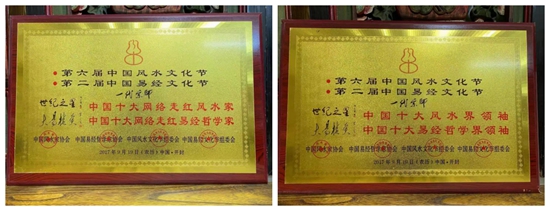 第六届中国风水文化节
第二届中国易经文化节
一代宗师
世纪之星
中国十大网络走红风水家
中国十大网络走红易经哲学家
中国风水家协会 中国易经哲学家协会 中国风水文化节组委会 中国易经文化节组委会
2017年9月10日(农历)中国·开封
第六届中国风水文化节
第二届中国易经文化节
一代宗师
世纪之星
中国十大风水界领袖
中国十大易经哲学界领袖
中国风水家协会 中国易经哲学家协会 中国风水文化节组委会 中国易经文化节组委会
2017年9月10日(农历)中国·开封